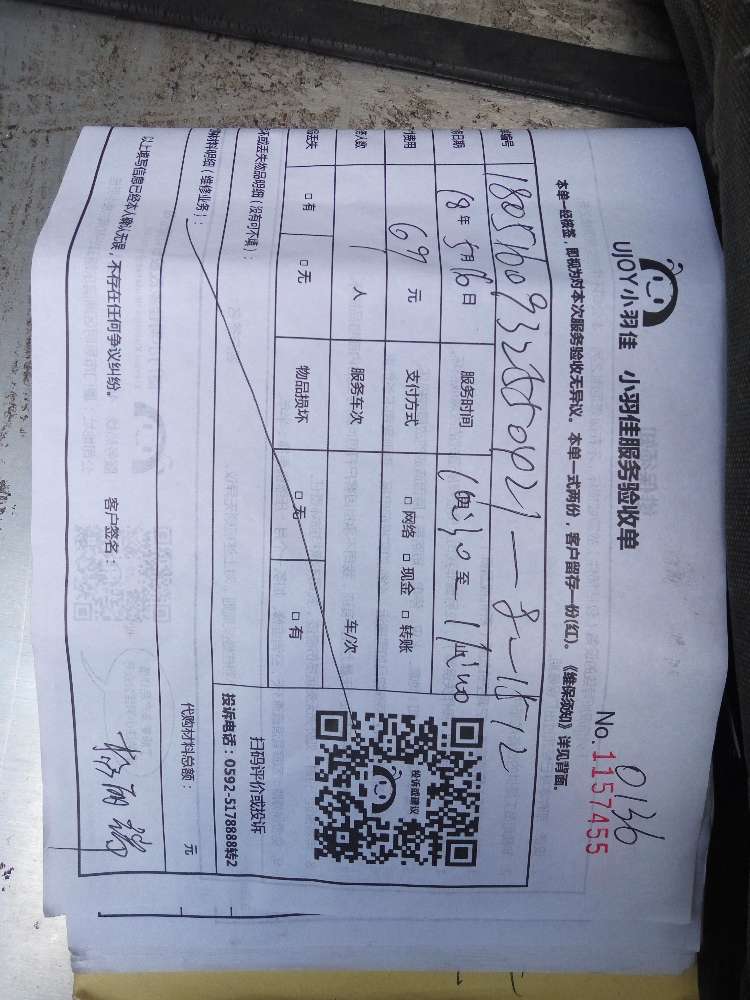 UJOY小羽佳 小羽佳服务验收单
0136
No. 1157455
本单一经接签，即视为对本次服务验收无异议。本单一式两份，客户留存一份(红)。《维保须知》详见背面。
编号
日期 18年5月16日 服务时间 至
费用 69元 支付方式 □网络 □现金 □转账
人数 1人 服务车次 车/次
丢失 □有 □无 物品损坏 □无 □有
投诉或建议
扫码评价或投诉
投诉电话：0592-5178888转2
坏或丢失物品明细（没有可不填）：
材料明细（维修业务）：
代购材料总额： 元
以上填写信息已经本人确认无误，不存在任何争议纠纷。 客户签名：